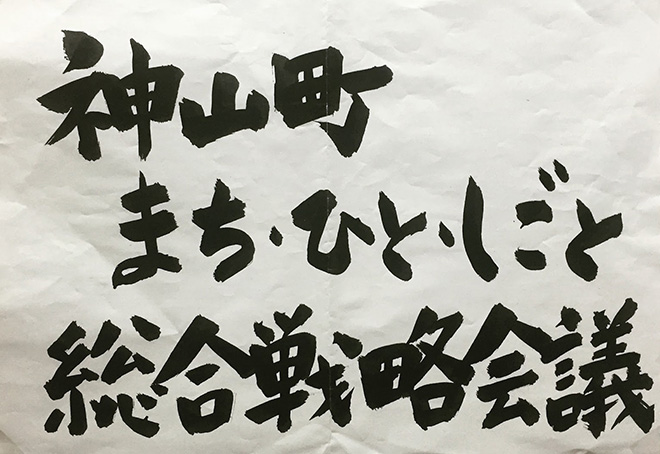 神山町
まち・ひと・しごと
総合戦略会議